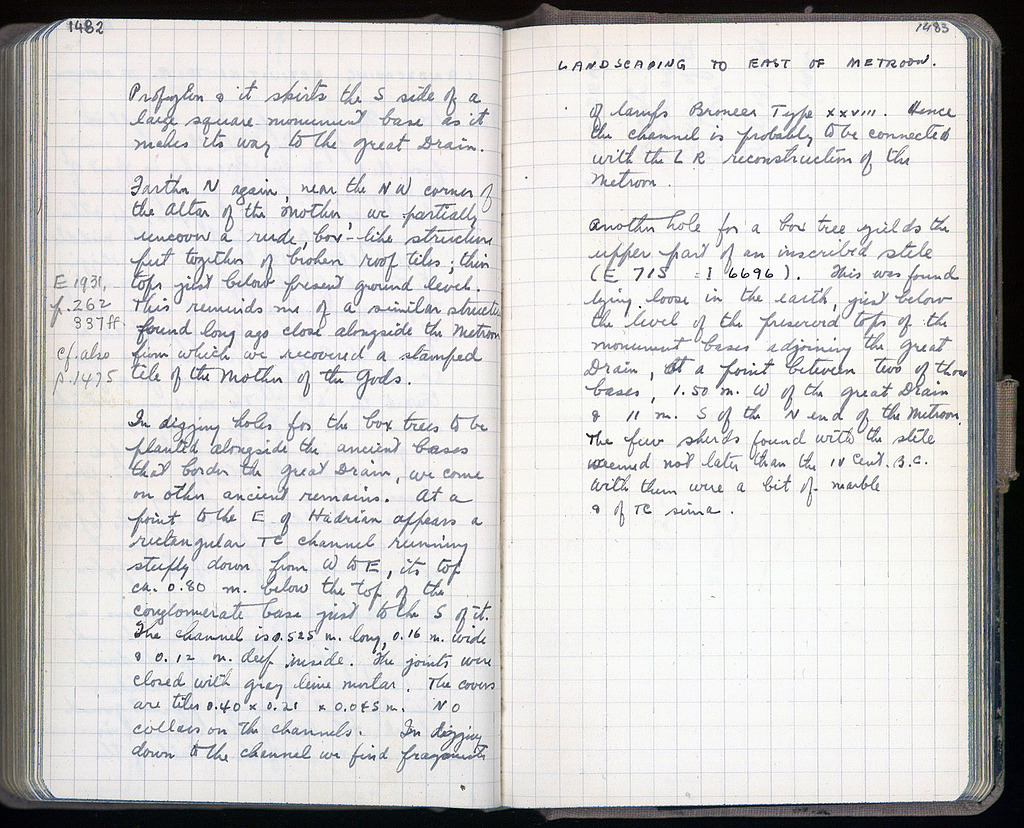 1482
Propylon & it skirts the S side of a
large square monument base as it
makes its way to the Great Drain.
Farther N again, near the NW corner of
the Altar of the Mother, we partially
uncover a rude, box-like structure
put together of broken roof tiles, their
tops just below present ground level.
This reminds me of a similar structure
found long ago close alongside the Metroon
from which we recovered a stamped
tile of the Mother of the Gods.
E 1931,
p. 262
337ff.
cf. also
p. 1475
In digging holes for the box trees to be
planted alongside the ancient bases
that border the Great Drain, we come
on other ancient remains. At a
point to the E of Hadrian appears a
rectangular TC channel running
steeply down from W to E, its top
ca. 0.80 m. below the top of the
conglomerate base just to the S of it.
The channel is 0.525 m. long, 0.16 m. wide
& 0.12 m. deep inside. The joints were
closed with gray lime mortar. The covers
are tiles 0.40 x 0.21 x 0.045 m. No
collars on the channels. In digging
down to the channel we find fragments
1483
LANDSCAPING TO EAST OF METROON.
of lamps Broneer Type XXVIII. Hence
the channel is probably to be connected
with the L R reconstruction of the
Metroon.
Another hole for a box tree yields the
upper part of an inscribed stele
(E 715 = I 6696). This was found
lying loose in the earth, just below
the level of the preserved tops of the
monument bases adjoining the Great
Drain, at a point between two of those
bases, 1.50 m. W of the Great Drain
& 11 m. S of the N end of the Metroon.
The few sherds found with the stele
seemed not later than the IV Cent. B.C.
With them were a bit of marble
& of TC sima.